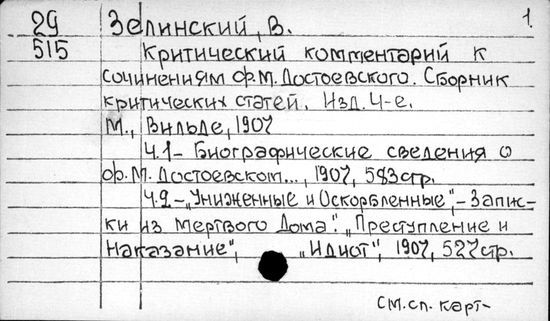 29 Зелинский, В. 1.
515 Критический комментарий к
сочинениям Ф.М. Достоевского. Сборник
критических статей. Изд. 4-е.
М., Вильде, 1907
Ч.1- Биографические сведения о
Ф.М. Достоевском..., 1907, 583 стр.
Ч.2-„Униженные и Оскорбленные",-Запис-
ки из Мертвого Дома". „Преступление и
Наказание", „Идиот", 1907, 527 стр.
см. сл. карт-